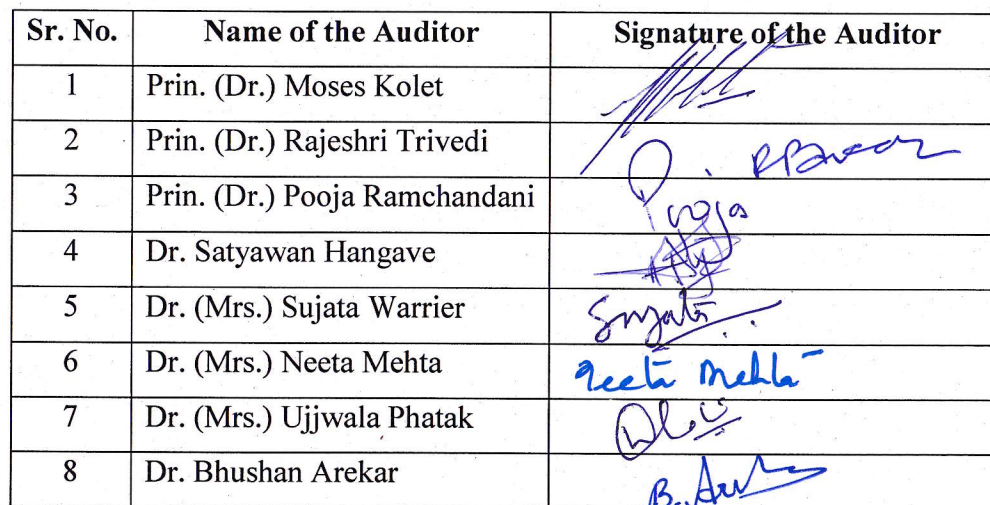 Sr. No. Name of the Auditor Signature of the Auditor
1 Prin. (Dr.) Moses Kolet
2 Prin. (Dr.) Rajeshri Trivedi
3 Prin. (Dr.) Pooja Ramchandani Pooja
4 Dr. Satyawan Hangave
5 Dr. (Mrs.) Sujata Warrier Sujata
6 Dr. (Mrs.) Neeta Mehta Neeta Mehta
7 Dr. (Mrs.) Ujjwala Phatak
8 Dr. Bhushan Arekar